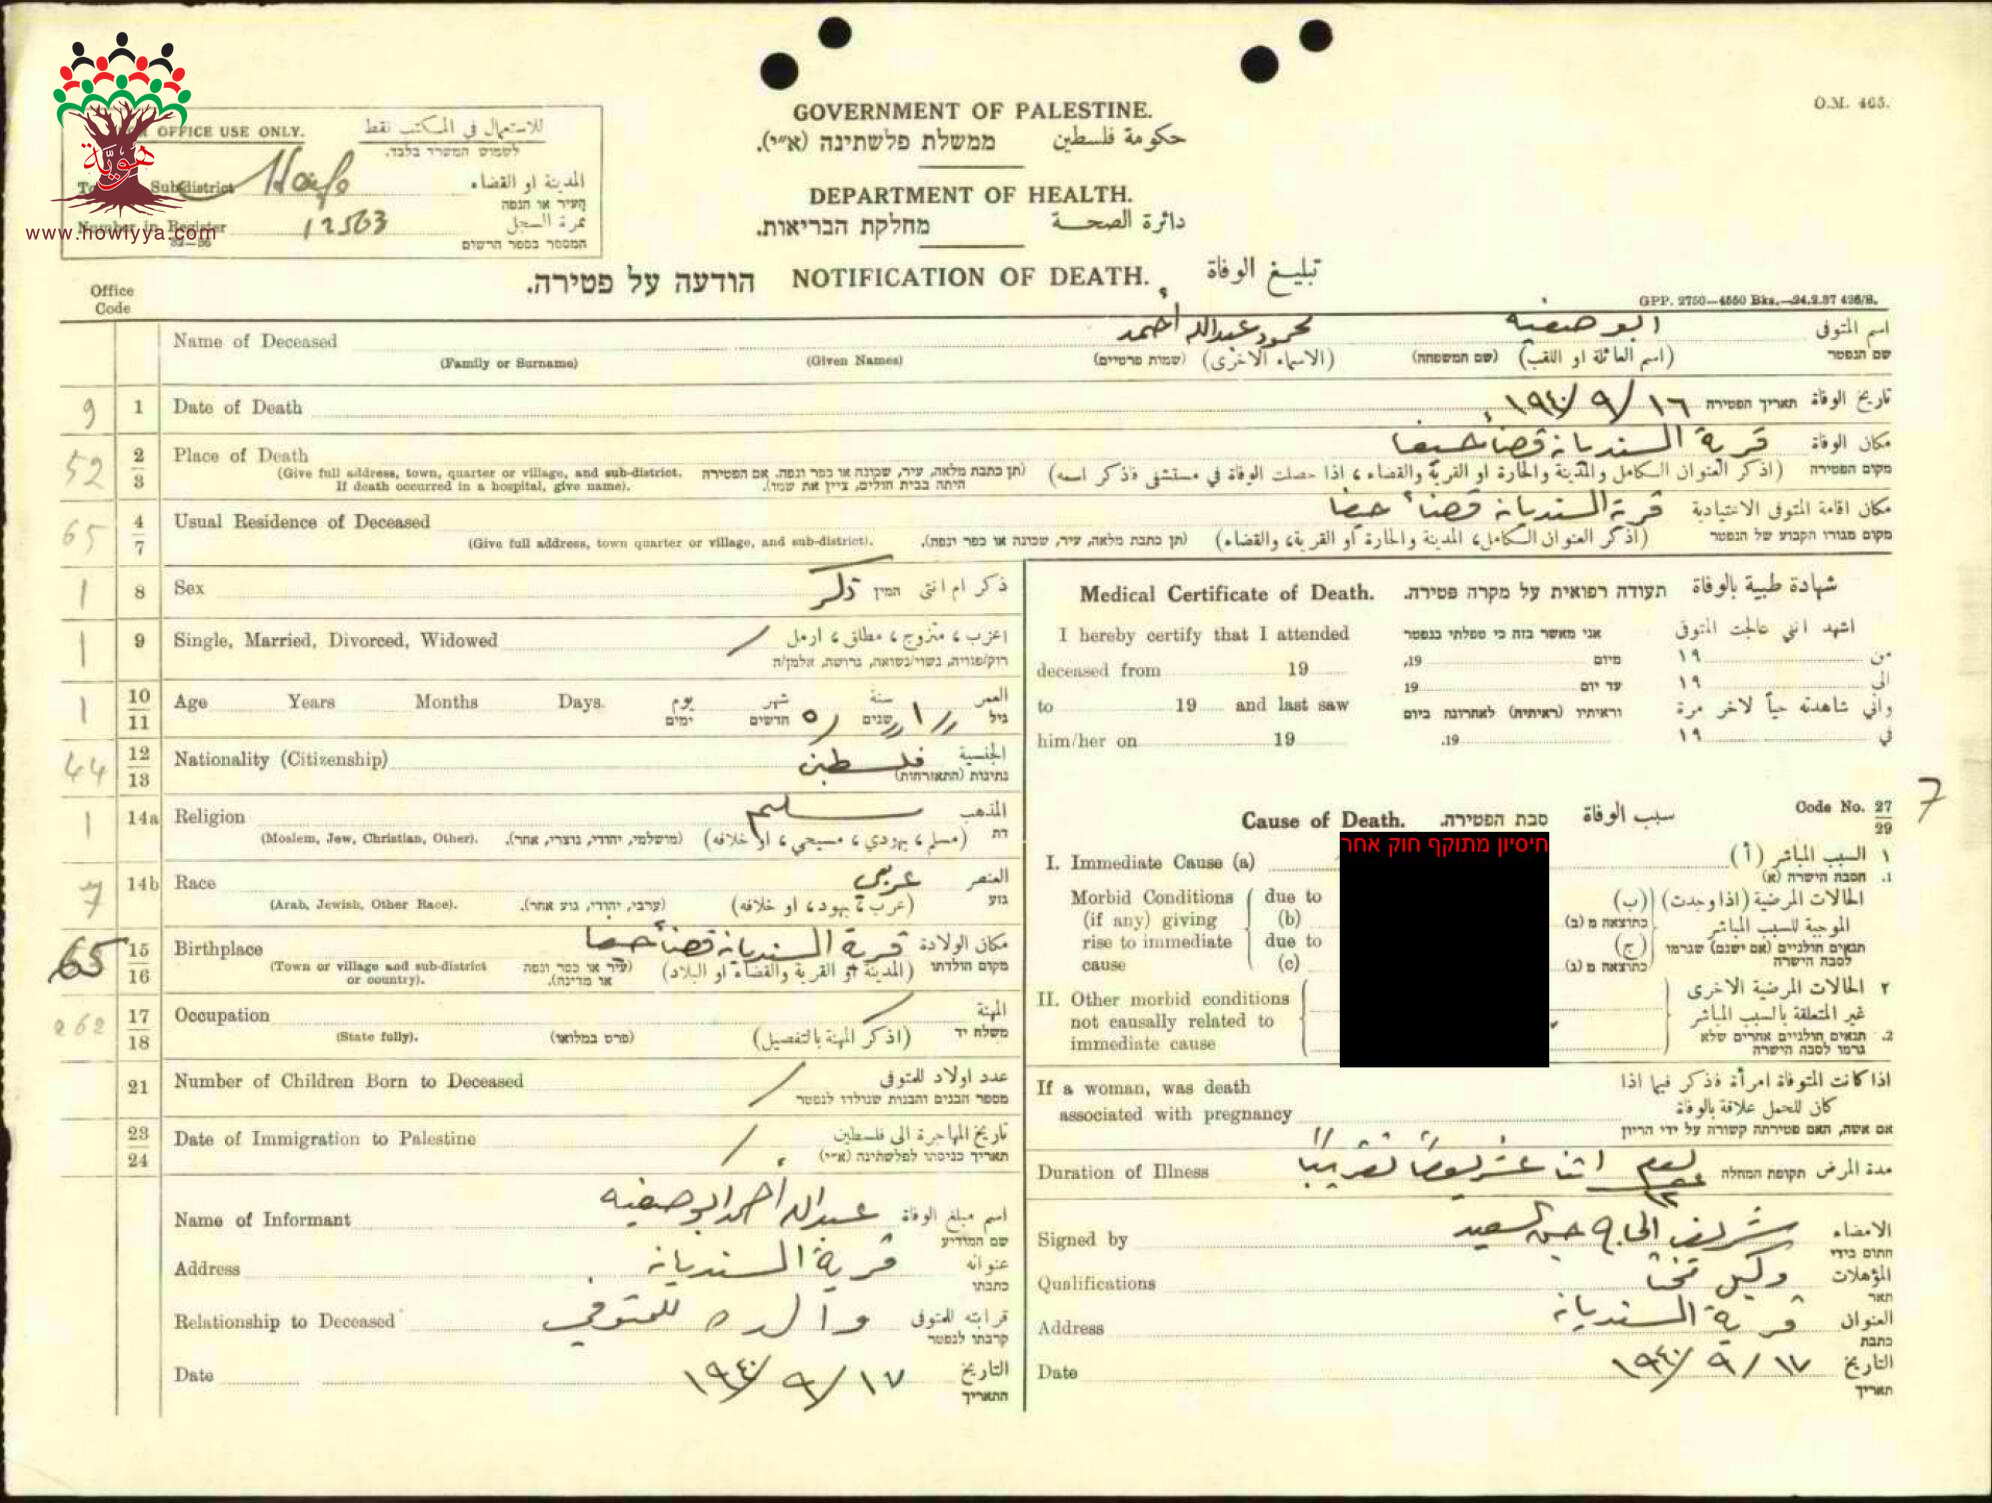 O.M. 465.
GOVERNMENT OF PALESTINE.
ממשלת פלשתינה (א״י). حكومة فلسطين
DEPARTMENT OF HEALTH.
מחלקת הבריאות. دائرة الصحة
OFFICE USE ONLY. للاستعمال في المكتب فقط
לשמוש המשרד בלבד.
Subdistrict Haifa المدينة او القضاء
העיר או הנפה
Number in Register 12563 نمرة السجل
המספר בספר הרשום
هوية
www.howiyya.com
הודעה על פטירה. NOTIFICATION OF DEATH. تبليغ الوفاة
Office Code
GPP. 2750—4550 Bks.—24.2.37 426/S.
Name of Deceased محمود عبدالله أحمد ابو صفيه اسم المتوفى
(Family or Surname) (Given Names) (שמות פרטיים) (الاسماء الاخرى) (שם המשפחה) (اسم العائلة او اللقب) שם הנפטר
9 1 Date of Death ١٦/٩/١٩٤٠ תאריך הפטירה تاريخ الوفاة
52 2/3 Place of Death قرية السنديانة قضاء حيفا مكان الوفاة
(Give full address, town, quarter or village, and sub-district. If death occurred in a hospital, give name). (תן כתבת מלאה, עיר, שכונה או כפר ונפה. אם הפטירה היתה בבית חולים, ציין את שמו). (اذكر العنوان الكامل والمدينة والحارة او القرية والقضاء، اذا حصلت الوفاة في مستشفى فاذكر اسمه) מקום הפטירה
65 4/7 Usual Residence of Deceased قرية السنديانة قضاء حيفا مكان اقامة المتوفى الاعتيادية
(Give full address, town quarter or village, and sub-district). (תן כתבת מלאה, עיר, שכונה או כפר ונפה). (اذكر العنوان الكامل، المدينة والحارة او القرية، والقضاء) מקום מגורו הקבוע של הנפטר
1 8 Sex ذكر המין ذكر ام انثى
1 9 Single, Married, Divorced, Widowed / اعزب، متزوج، مطلق، ارمل
רוק/פנויה, נשוי/נשואה, גרושה, אלמן/ה
1 10/11 Age Years Months Days. يوم شهر سنة العمر
ימים חדשים ٥ שנים ١ גיל
44 12/13 Nationality (Citizenship) فلسطين الجنسية
נתינות (התאזרחות)
1 14a Religion مسلم المذهب
(Moslem, Jew, Christian, Other). (מושלמי, יהודי, נוצרי, אחר). (مسلم، يهودي، مسيحي، او خلافه) דת
7 14b Race عربي العنصر
(Arab, Jewish, Other Race). (ערבי, יהודי, גזע אחר). (عرب، يهود، او خلافه) גזע
65 15/16 Birthplace قرية السنديانة قضاء حيفا مكان الولادة
(Town or village and sub-district or country). (עיר או כפר ונפה או מדינה). (المدينة او القرية والقضاء او البلاد) מקום הולדתו
262 17/18 Occupation / المهنة
(State fully). (פרט במלואו) (اذكر المهنة بالتفصيل) משלח יד
21 Number of Children Born to Deceased / عدد اولاد للمتوفى
מספר הבנים והבנות שנולדו לנפטר
23/24 Date of Immigration to Palestine / تاريخ المهاجرة الى فلسطين
תאריך כניסתו לפלשתינה (א״י)
Name of Informant عبدالله أحمد ابو صفيه اسم مبلغ الوفاة
שם המודיע
Address قرية السنديانة عنوانه
כתבתו
Relationship to Deceased والده للمتوفي قرابته للمتوفى
קרבתו לנפטר
Date ١٧/٩/١٩٤٠ التاريخ
התאריך
Medical Certificate of Death. תעודה רפואית על מקרה פטירה. شهادة طبية بالوفاة
I hereby certify that I attended אני מאשר בזה כי טפלתי בנפטר اشهد انني عالجت المتوفى
deceased from 19 מיום 19, من ١٩
to 19 and last saw עד יום 19 الى ١٩
וראיתיו (ראיתיה) לאחרונה ביום واني شاهدته حياً لاخر مرة
him/her on 19 19. في ١٩
Cause of Death. סבת הפטירה. سبب الوفاة Code No. 27/29 7
חיסיון מתוקף חוק אחר
I. Immediate Cause (a) ١ السبب المباشر (أ)
1. הסבה הישרה (א)
Morbid Conditions (if any) giving rise to immediate cause due to (b) due to (c)
الحالات المرضية (اذا وجدت) الموجبة للسبب المباشر (ب) (ج)
תנאים חולניים (אם ישנם) שגרמו לסבה הישרה
II. Other morbid conditions not causally related to immediate cause
٢ الحالات المرضية الاخرى غير المتعلقة بالسبب المباشر
2. תנאים חולניים אחרים שלא גרמו לסבה הישרה
If a woman, was death associated with pregnancy
اذا كانت المتوفاة امرأة فذكر فيما اذا كان للحمل علاقة بالوفاة
אם אשה, האם פטירתה קשורה על ידי הריון
Duration of Illness اثنا عشر يوماً تقريباً תקופת המחלה مدة المرض
١٢
Signed by شريف الحاج حسن السعيد الامضاء
חתום בידי
Qualifications وكيل المؤهلات
תאר
Address قرية السنديانة العنوان
כתבת
Date ١٧/٩/١٩٤٠ التاريخ
תאריך